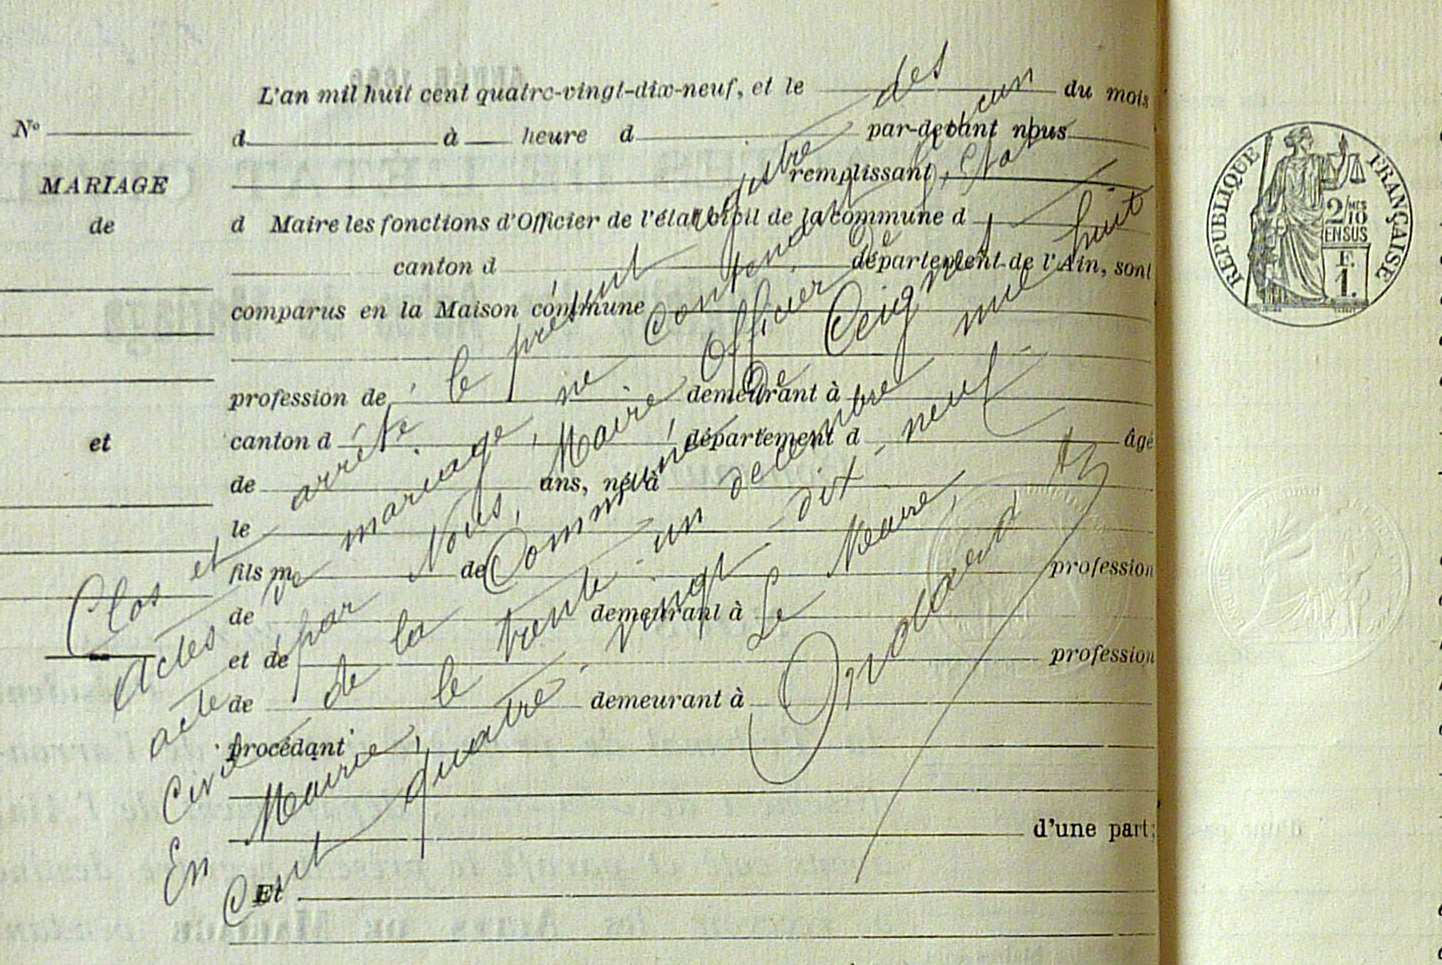 L'an mil huit cent quatre-vingt-dix-neuf, et le du mois
d à heure d par-devant nous
remplissant
d Maire les fonctions d'Officier de l'état civil de la commune d
canton d département de l'Ain, sont
comparus en la Maison commune
profession de demeurant à
canton d département d âgé
de ans, né à
le
fils m de profession
de demeurant à
et de profession
de demeurant à
procédant
d'une part;
Et
N°
MARIAGE
de
et
Clos et arrêté le présent registre des
actes de mariage, ne contenant aucun
acte par Nous, Maire, Officier de l'Etat
Civil de la Commune de Ceignes
En Mairie, le trente-un decembre mil huit
Cent quatre-vingt-dix-neuf
Le Maire,
RÉPUBLIQUE FRANÇAISE
2/10 MES
EN SUS
F.
1.